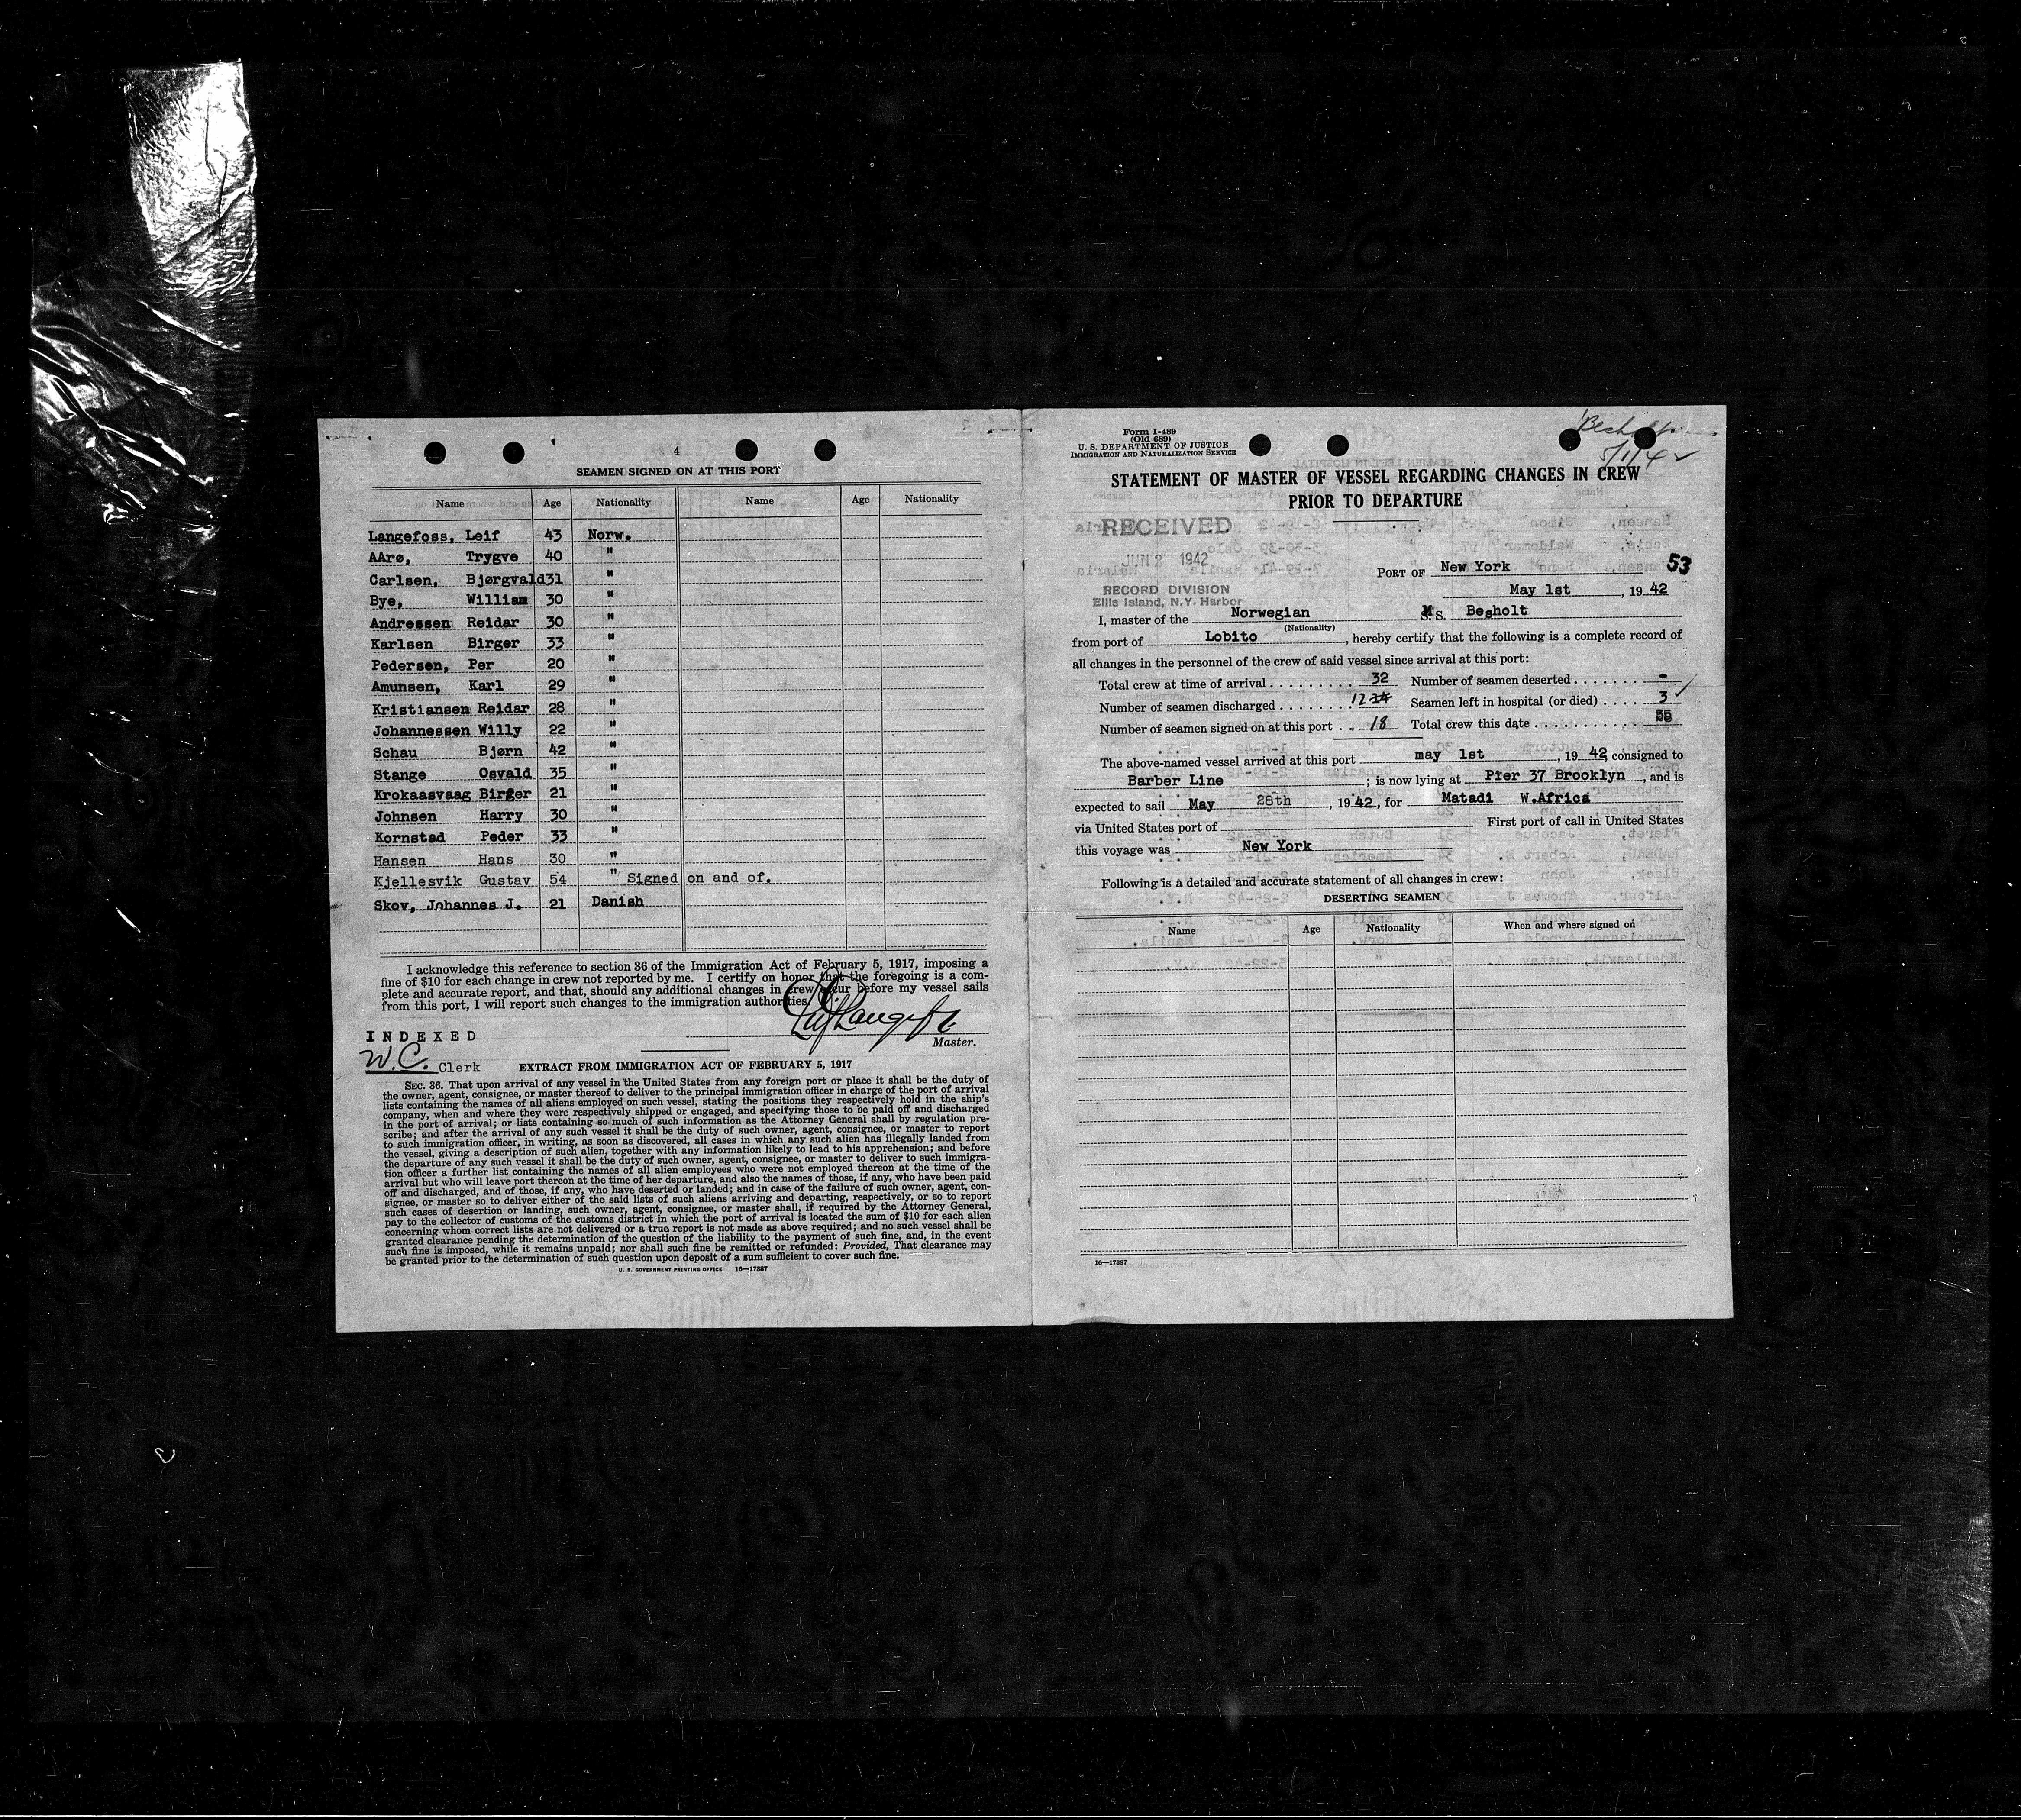 4
SEAMEN SIGNED ON AT THIS PORT
Name Age Nationality Name Age Nationality
Langefoss, Leif 43 Norw.
AArø, Trygve 40 "
Carlsen, Bjørgvald 31 "
Bye, William 30 "
Andressen Reidar 30 "
Karlsen Birger 33 "
Pedersen, Per 20 "
Amunsen, Karl 29 "
Kristiansen Reidar 28 "
Johannessen Willy 22 "
Schau Bjørn 42 "
Stange Osvald 35 "
Krokaasvaag Birger 21 "
Johnsen Harry 30 "
Kornstad Peder 33 "
Hansen Hans 30 "
Kjellesvik Gustav 54 " Signed on and of.
Skov, Johannes J. 21 Danish
I acknowledge this reference to section 36 of the Immigration Act of February 5, 1917, imposing a
fine of $10 for each change in crew not reported by me. I certify on honor that the foregoing is a com-
plete and accurate report, and that, should any additional changes in crew occur before my vessel sails
from this port, I will report such changes to the immigration authorities.
INDEXED
Master.
W.C. Clerk
EXTRACT FROM IMMIGRATION ACT OF FEBRUARY 5, 1917
SEC. 36. That upon arrival of any vessel in the United States from any foreign port or place it shall be the duty of
the owner, agent, consignee, or master thereof to deliver to the principal immigration officer in charge of the port of arrival
lists containing the names of all aliens employed on such vessel, stating the positions they respectively hold in the ship's
company, when and where they were respectively shipped or engaged, and specifying those to be paid off and discharged
in the port of arrival; or lists containing so much of such information as the Attorney General shall by regulation pre-
scribe; and after the arrival of any such vessel it shall be the duty of such owner, agent, consignee, or master to report
to such immigration officer, in writing, as soon as discovered, all cases in which any such alien has illegally landed from
the vessel, giving a description of such alien, together with any information likely to lead to his apprehension; and before
the departure of any such vessel it shall be the duty of such owner, agent, consignee, or master to deliver to such immigra-
tion officer a further list containing the names of all alien employees who were not employed thereon at the time of the
arrival but who will leave port thereon at the time of her departure, and also the names of those, if any, who have been paid
off and discharged, and of those, if any, who have deserted or landed; and in case of the failure of such owner, agent, con-
signee, or master so to deliver either of the said lists of such aliens arriving and departing, respectively, or so to report
such cases of desertion or landing, such owner, agent, consignee, or master shall, if required by the Attorney General,
pay to the collector of customs of the customs district in which the port of arrival is located the sum of $10 for each alien
concerning whom correct lists are not delivered or a true report is not made as above required; and no such vessel shall be
granted clearance pending the determination of the question of the liability to the payment of such fine, and, in the event
such fine is imposed, while it remains unpaid; nor shall such fine be remitted or refunded: Provided, That clearance may
be granted prior to the determination of such question upon deposit of a sum sufficient to cover such fine.
U. S. GOVERNMENT PRINTING OFFICE 16—17387
Form I-489
(Old 689)
U. S. DEPARTMENT OF JUSTICE
IMMIGRATION AND NATURALIZATION SERVICE
5/1/42
STATEMENT OF MASTER OF VESSEL REGARDING CHANGES IN CREW
PRIOR TO DEPARTURE
RECEIVED
JUN 2 1942
RECORD DIVISION
Ellis Island, N.Y. Harbor
PORT OF New York 53
May 1st, 1942
I, master of the Norwegian M.S. Begholt
(Nationality)
from port of Lobito, hereby certify that the following is a complete record of
all changes in the personnel of the crew of said vessel since arrival at this port:
Total crew at time of arrival 32 Number of seamen deserted -
Number of seamen discharged 12 Seamen left in hospital (or died) 3
Number of seamen signed on at this port 18 Total crew this date
The above-named vessel arrived at this port may 1st, 1942, consigned to
Barber Line; is now lying at Pier 37 Brooklyn, and is
expected to sail May 28th, 1942, for Matadi W.Africa
via United States port of First port of call in United States
this voyage was New York
Following is a detailed and accurate statement of all changes in crew:
DESERTING SEAMEN
Name Age Nationality When and where signed on
16—17387